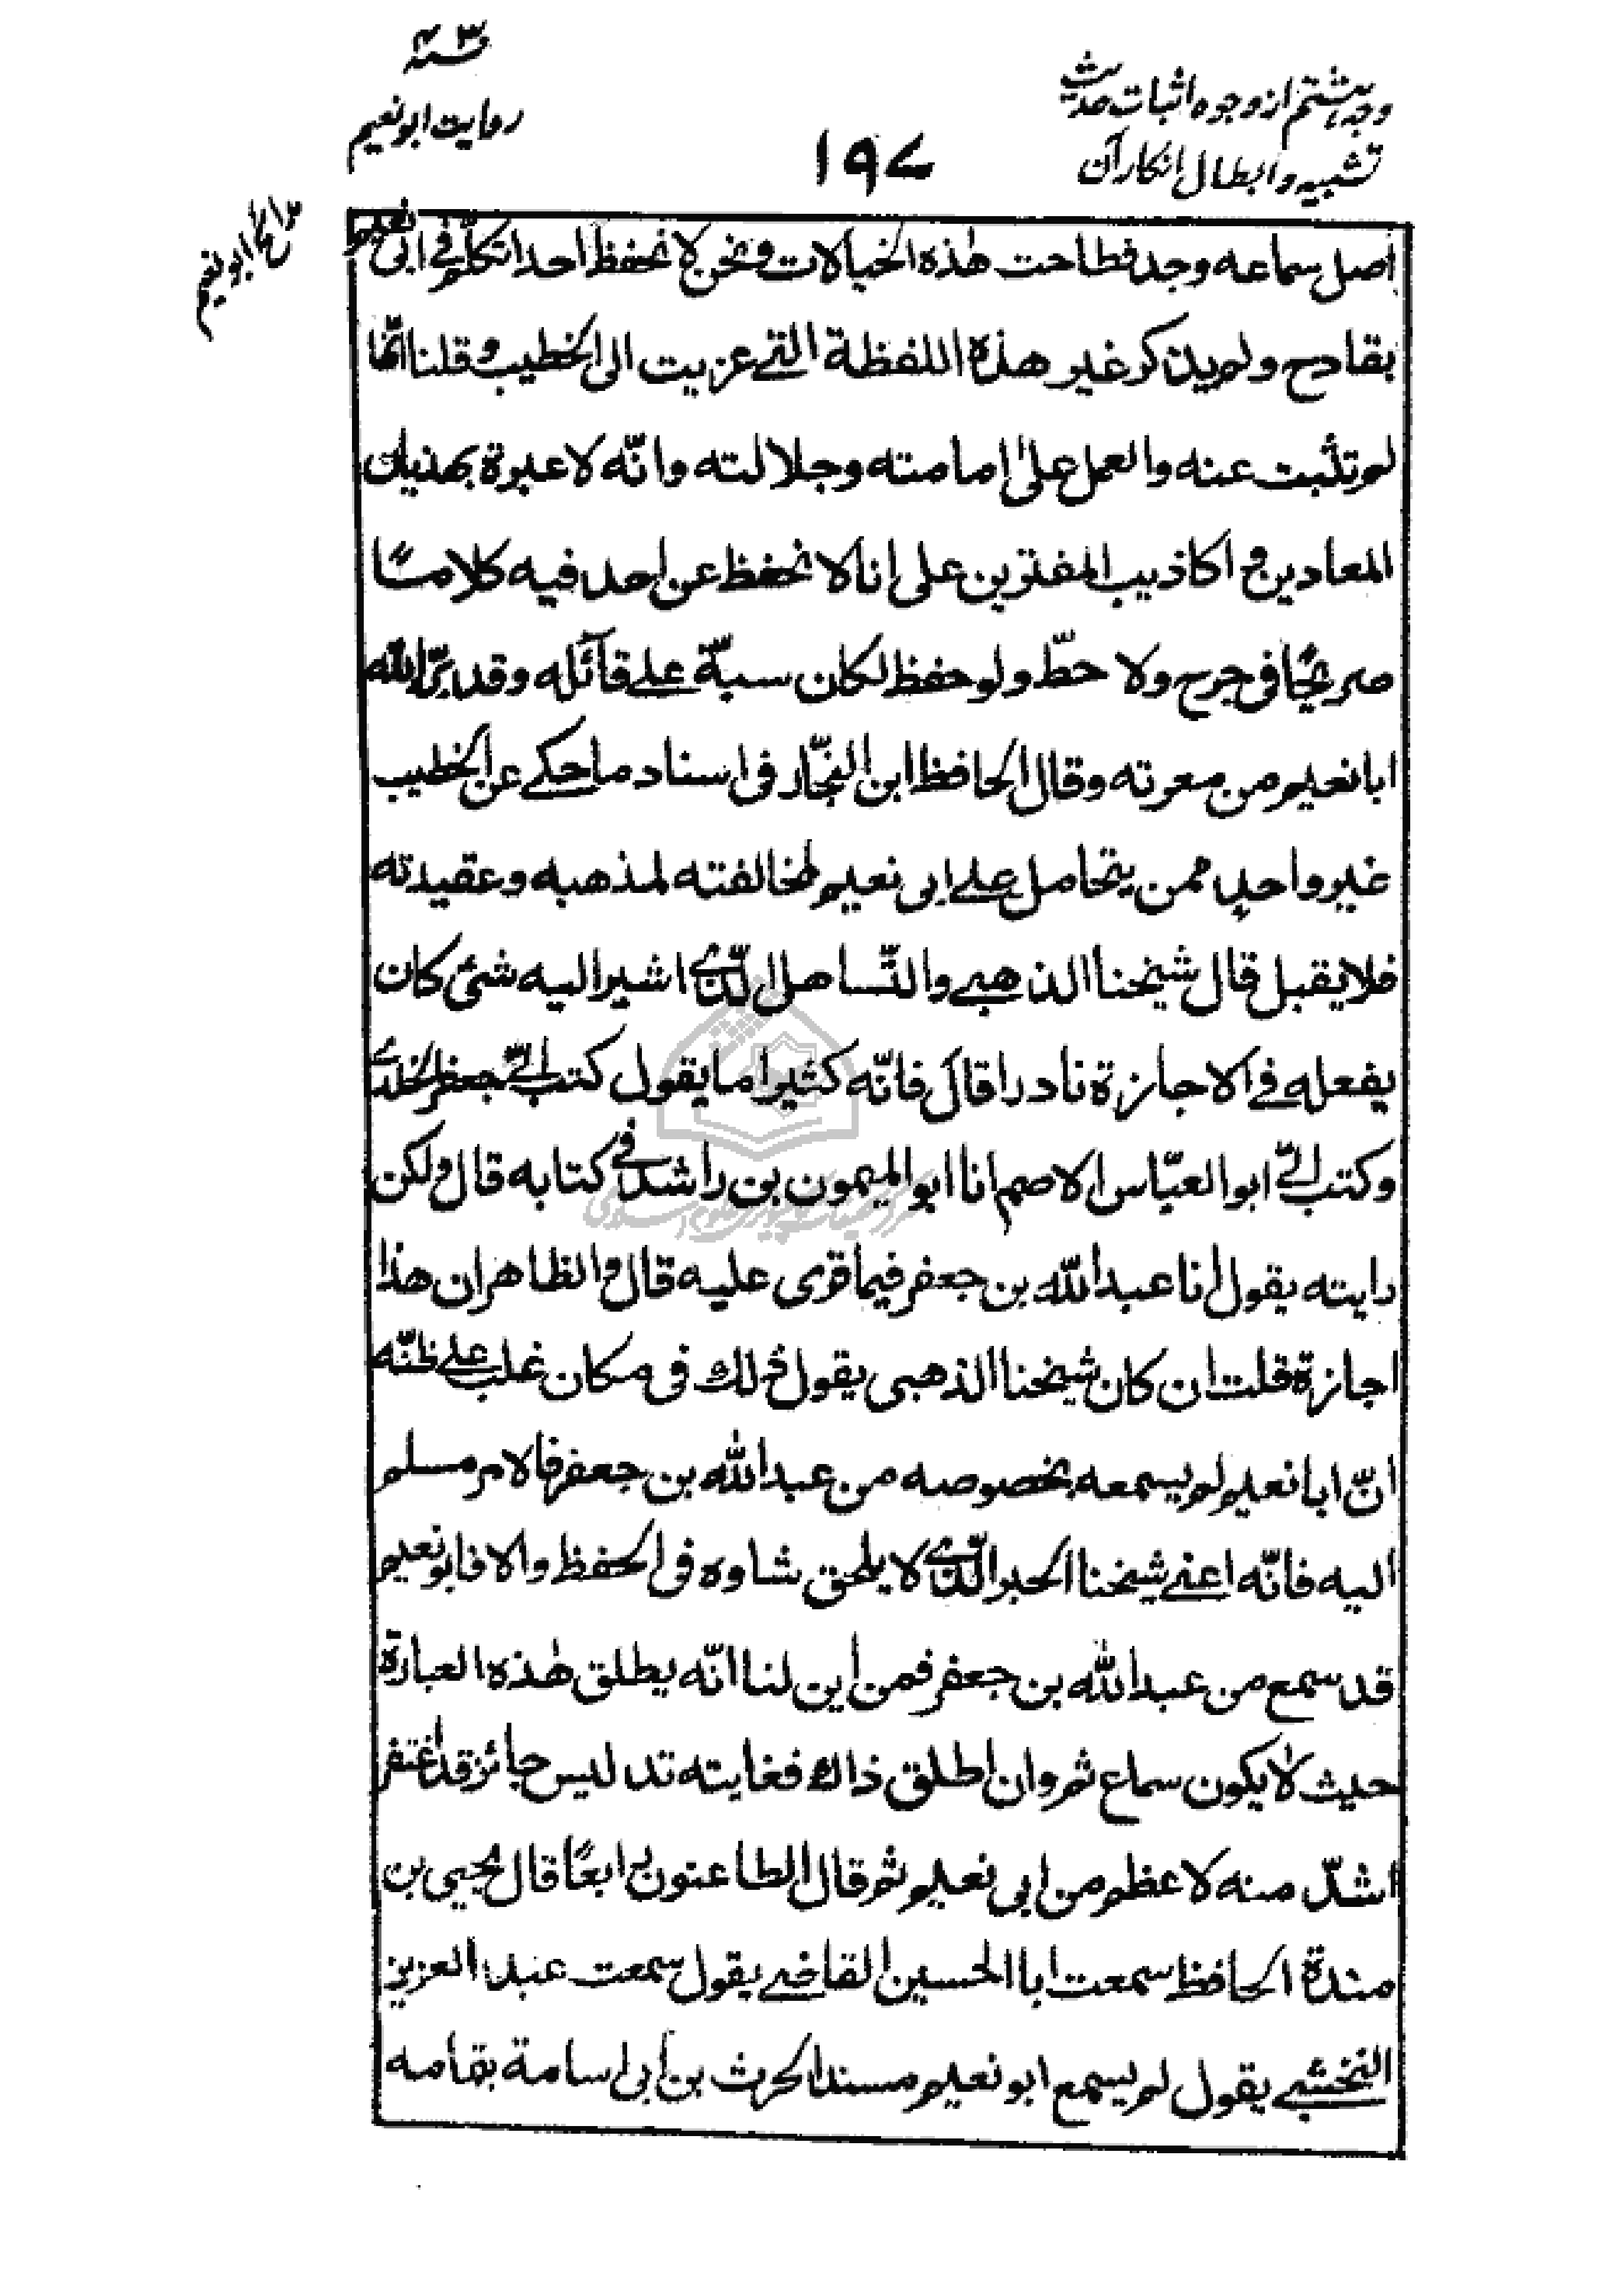 وجه هشتم از وجوه اثبات حدیث
تشبیه و ابطال انکار آن
۱۹۷
روایت ابو نعیم
مدائح ابو نعیم
اصل سماعه وجد فطاحت هذه الخیالات ونحن لا نحفظ احدا تکلّم فی ابی نعیم
بقادح ولم یذکر غیر هذه اللفظة التی عزیت الی الخطیب وقلنا انّها
لم تثبت عنه والعمل علی امامته وجلالته وانّه لا عبرة بهذیان
المعادین و اکاذیب المفترین علی انا لا نحفظ عن احد فیه کلامًا
صریحًا فی جرح ولا حطّ ولو حفظ لکان سبّة علی قآئله وقد برّا الله
ابا نعیم من معرته وقال الحافظ ابن النجّار فی اسناد ما حکی عن الخطیب
غیر واحد ممن یتحامل علی ابی نعیم لمخالفته لمذهبه وعقیدته
فلا یقبل قال شیخنا الذهبی والتّساهل الّذی اشیر الیه شئ کان
یفعله فی الاجازة نادرا قال فانّه کثیرا ما یقول کتب الیّ جعفر الخلدی
وکتب الیّ ابو العبّاس الاصم انا ابو المیمون بن راشد فی کتابه قال ولکن
رایته یقول انا عبد الله بن جعفر فیما قری علیه قال والظاهر ان هذا
اجازة قلت ان کان شیخنا الذهبی یقول ذلك فی مکان غلب علی ظنّه
انّ ابا نعیم لم یسمعه بخصوصه من عبد الله بن جعفر فالامر مسلم
الیه فانّه اعنی شیخنا الحبر الّذی لا یلحق شاوه فی الحفظ والا فابو نعیم
قد سمع من عبد الله بن جعفر فمن این لنا انّه یطلق هذه العبارة
حیث لا یکون سماع ثم وان اطلق ذلك فغایته تدلیس جائز قد اغتفر
اشدّ منه لاعظم من ابی نعیم ثم قال الطاعنون رابعًا قال یحیی بن
مندة الحافظ سمعت ابا الحسین القاضی یقول سمعت عبد العزیز
النخشبی یقول لم یسمع ابو نعیم مسند الحرث بن ابی اسامة بتمامه